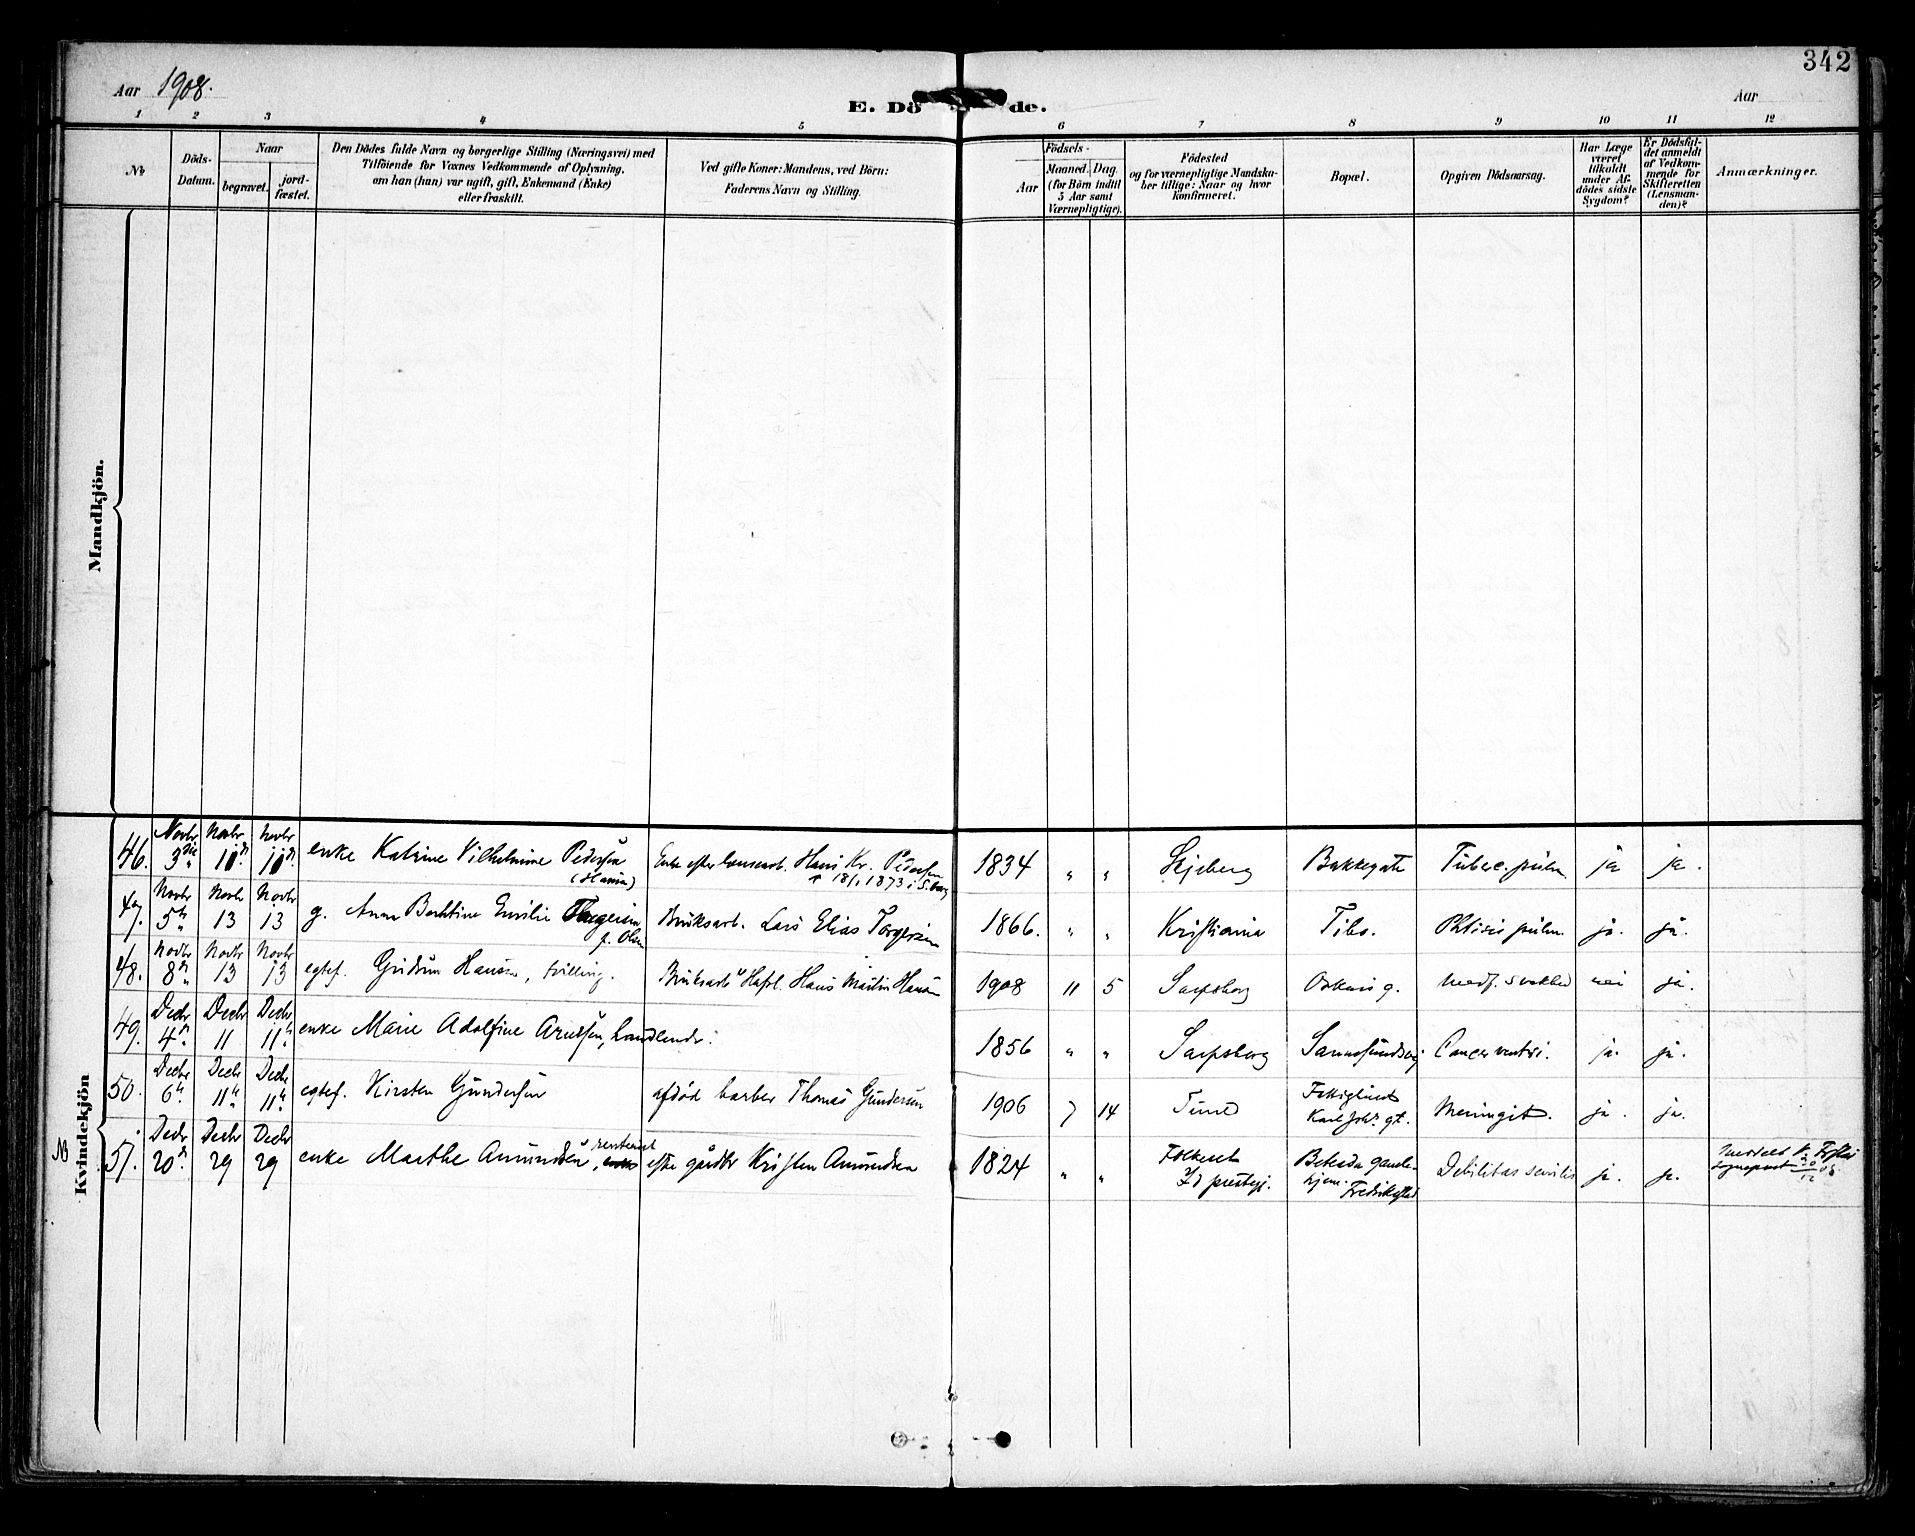 342
Aar 1908.
Aar
E. Dö de.
1 2 3 4 5 6 7 8 9 10 11 12
No
Döds-
Datum.
Naar
begravet.
jord-
fæstet.
Den Dödes fulde Navn og borgerlige Stilling (Næringsvei) med
Tilföiende for Voxnes Vedkommende af Oplysning,
om han (hun) var ugift, gift, Enkemand (Enke)
eller fraskilt.
Ved gifte Koner: Mandens, ved Börn:
Faderens Navn og Stilling.
Födsels-
Aar
Maaned. Dag.
(for Börn indtil
5 Aar samt
Værnepligtige).
Födested
og for værnepligtige Mandska-
ber tillige: Naar og hvor
Konfirmeret.
Bopæl.
Opgiven Dödsaarsag.
Har Læge
været
tilkaldt
under Af-
dödes sidste
Sygdom?
Er Dödsfal-
det anmeldt
af Vedkom-
mende for
Skifteretten
(Lensman-
den)?
Anmærkninger.
Mandkjön.
Kvindekjön
46. Novbr 3die Novbr 10de Novbr 10de enke Katrine Vilhelmine Pedersen (Hansen) Enke efter Hans Kr. Pedersen † 18/1 1873 i S.borg 1834 " " Skjeberg Bakkegate Tuberc. pulm. ja ja.
47. Novbr 5te Novbr 13 Novbr 13 g. Anna Berhtine Emilie Torgersen f. Olsen Bruksarb. Lars Elias Torgersen 1866. " " Kristiania Tibo. Phtisis pulm. ja. ja.
48. Novbr 8de Novbr 13 Novbr 13 egtef. Gudrun Hansen, tvilling. Bruksarb. Hans Martin Hansen 1908 11 5 Sarpsborg Oskars g. Medf. svakhed nei ja.
49. Decbr 4de Decbr 11 Decbr 11te enke Marie Adolfine Arnesen, handlende. 1856 " " Sarpsborg Cancer ventri. ja. ja.
50. Decbr 6te Decbr 11te Decbr 11te egtef. Kirsten Gundersen afdød barber Thomas Gundersen 1906 7 14 Tune Karl Joh. gt. Meningit. ja. ja.
NB 51. Decbr 20de Decbr 29 Decbr 29 enke Marthe Amundsen, efter gårdbr Kristen Amundsen 1824 " " Id prestegj. Betesda gamle-
hjem. Fredrikstad Debilitas senilis ja. ja.